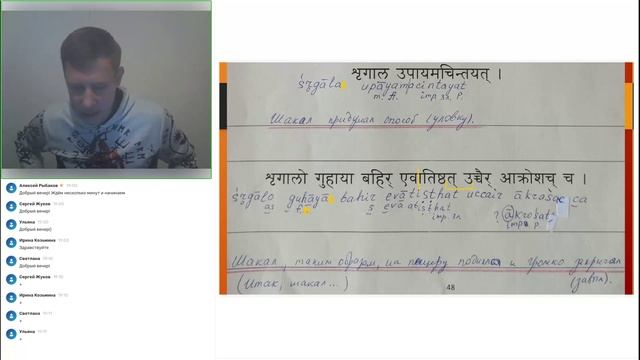 Алексей Рыбаков
Добрый вечер! Ждём несколько минут и начинаем
Сергей Жуков
Добрый вечер!
Ульяна
Добрый вечер)
Ирина Козьмина
Здравствуйте
Светлана
Добрый вечер!
Сергей Жуков
+
Ирина Козьмина
+
Светлана
+
Ульяна
+
शृगाल उपायमचिन्तयत् ।
śṛgāla upāyam acintayat
m. A. imp. 3s. P.
Шакал придумал способ (уловку).
शृगालो गुहाया बहिर् एवातिष्ठत् उच्चैर् आक्रोशच् च ।
śṛgālo guhāyā bahir evātiṣṭhat uccair ākrośac ca
as f. s eva atiṣṭhat ? ākrośat
imp. 3s. imp. P.
Шакал, таким образом, на пещеру и громко
(Итак, шакал...)
48